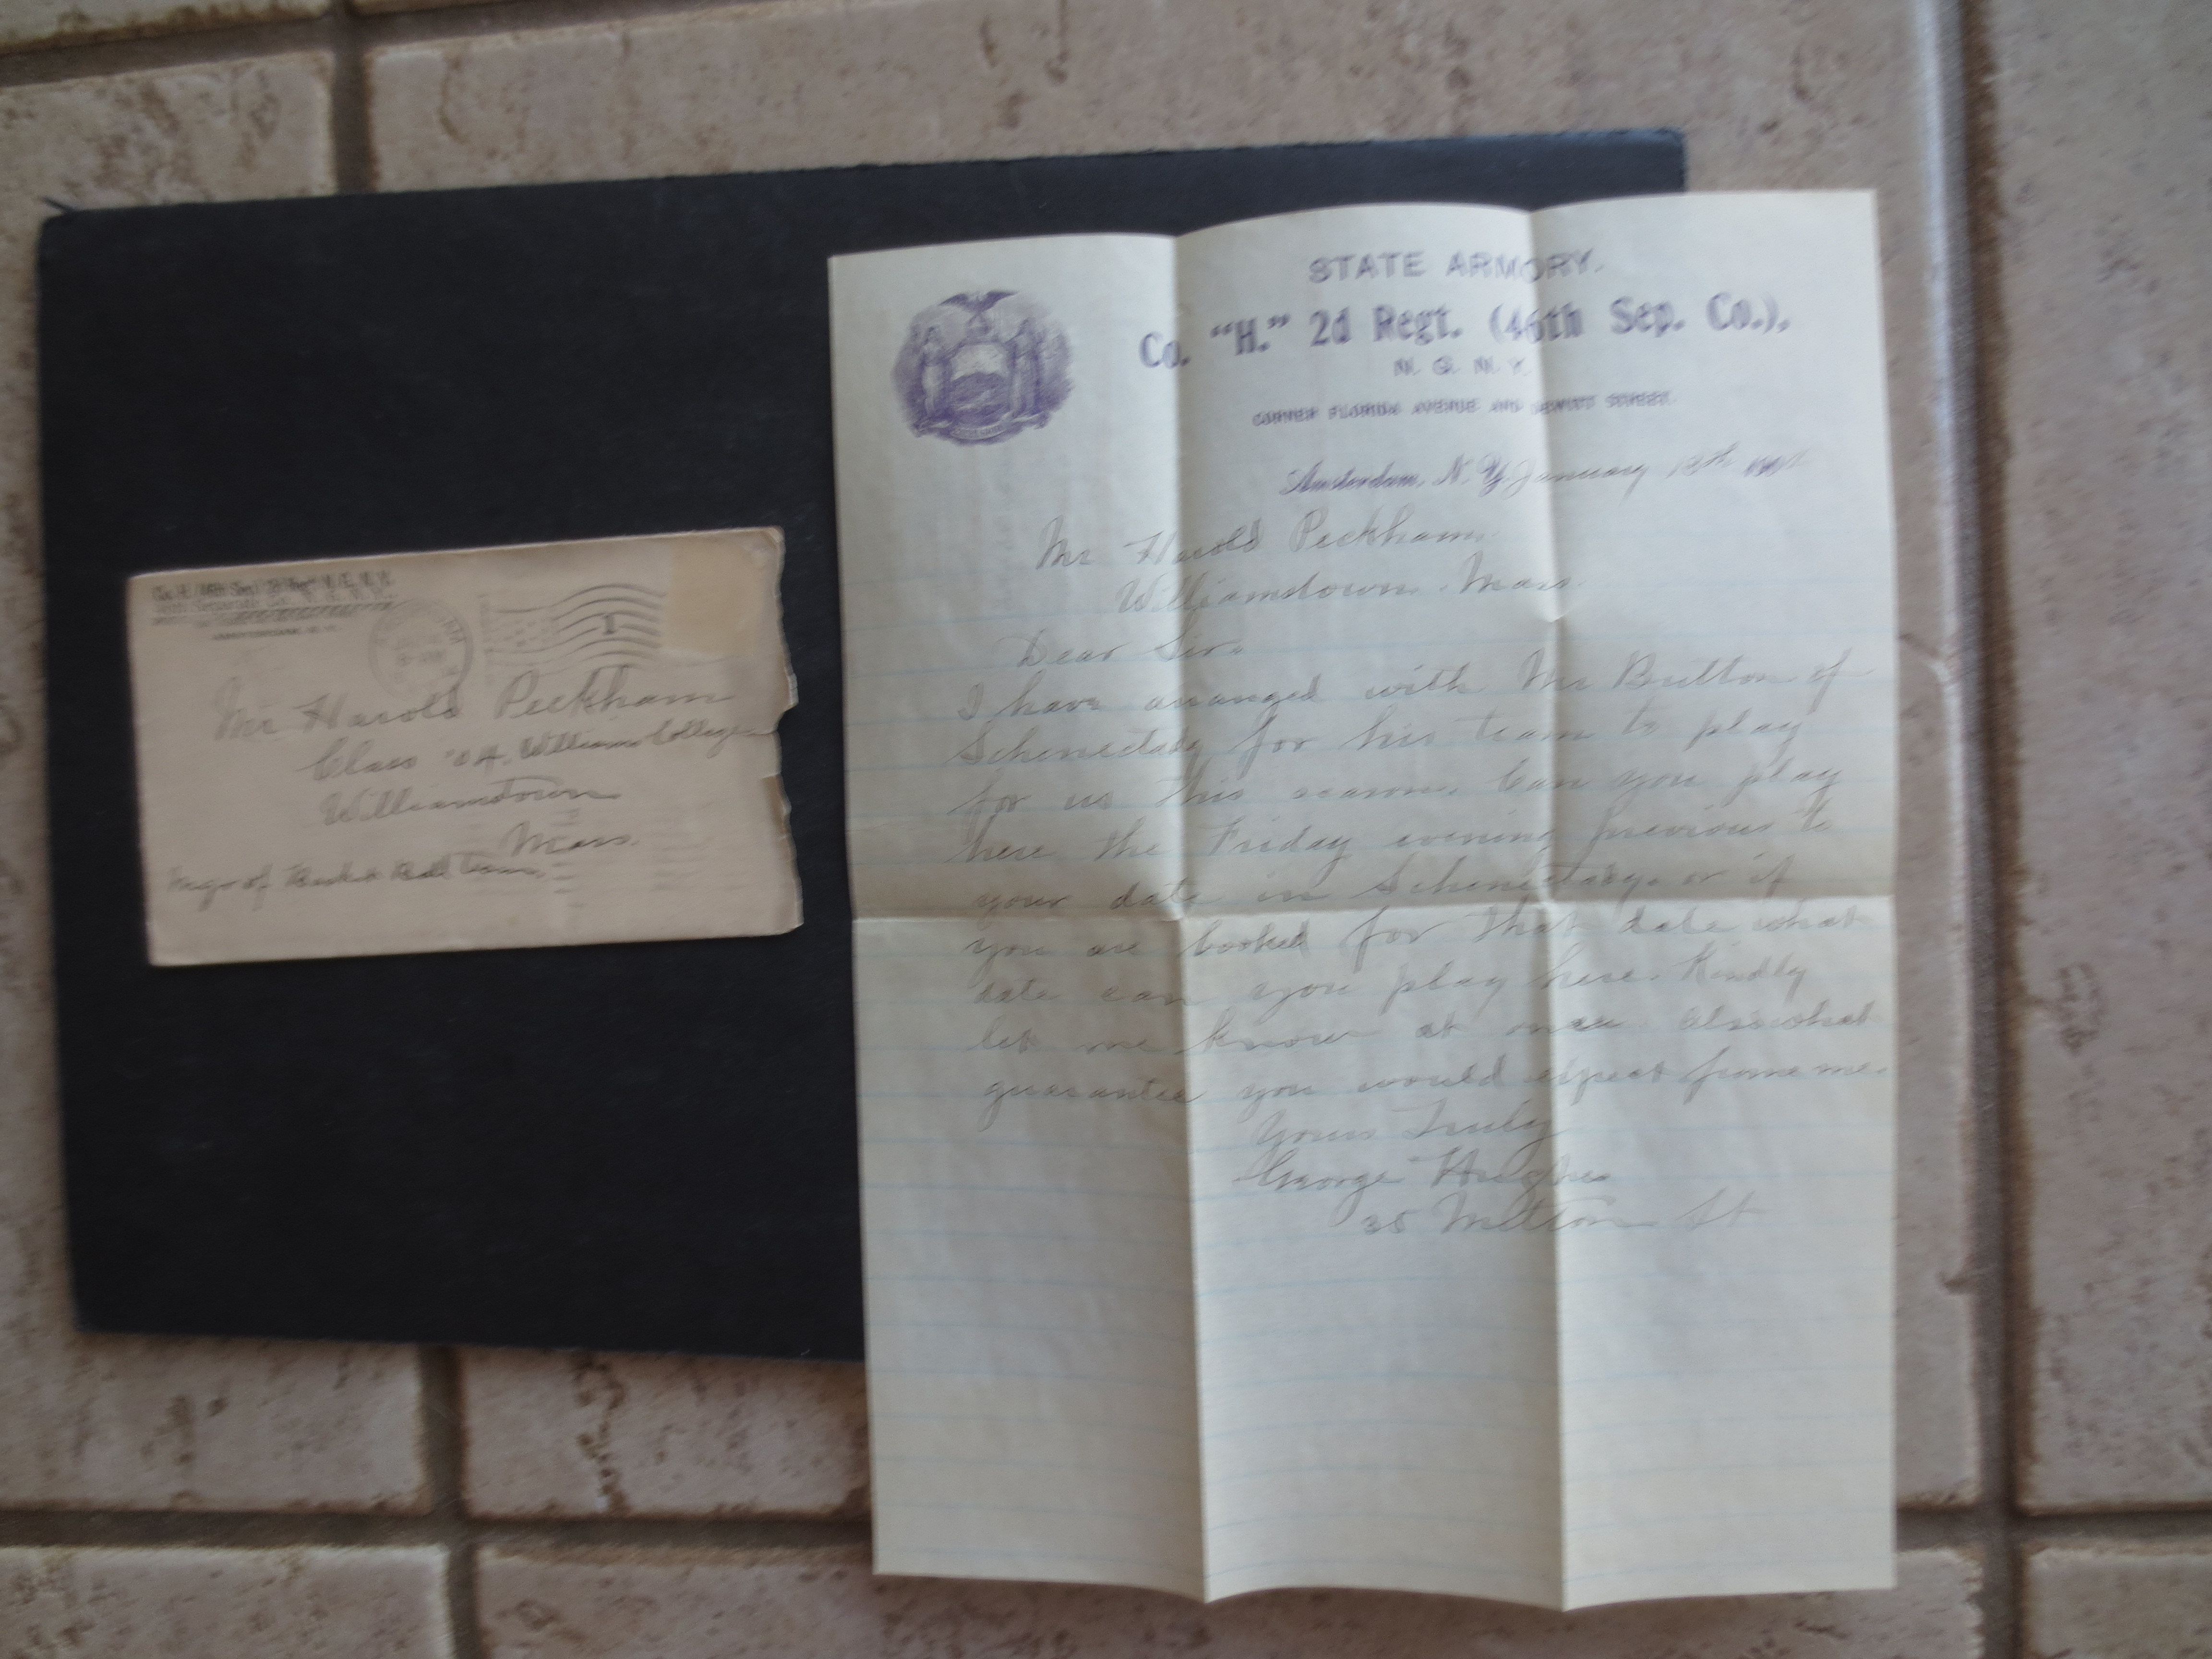 Mr Harold Peckham
Class '04. Williams College
Williamstown
Mass.
Mgr of Basket Ball Team.
STATE ARMORY.
Co. "H." 2d Regt. (46th Sep. Co.),
N. G. N. Y.
CORNER FLORIDA AVENUE AND DEWITT STREET.
Amsterdam, N. Y. January 13th
Mr Harold Peckham
Williamstown. Mass.
Dear Sir:
I have arranged with Mr Button of
Schenectady for his team to play
for us this season. Can you play
here the Friday evening previous to
your date in Schenectady. or if
you are booked for that date what
date can you play here. Kindly
let me know at once also what
guarantee you would expect from me.
Yours Truly
George Hughes
35 St